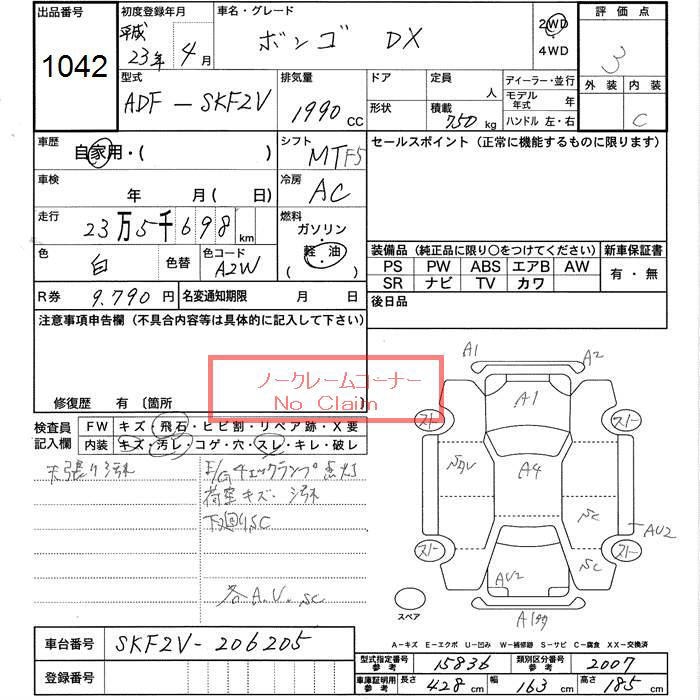 出品番号
1042
初度登録年月
平成
23年 4月
車名・グレード
ボンゴ DX
2WD
・
4WD
評価点
3
外装 内装
C
型式
ADF-SKF2V
排気量
1990 CC
ドア
定員
人
形状
積載
750 kg
ディーラー・並行
モデル年式 年
ハンドル 左・右
車歴
自家用・( )
シフト
MTF5
セールスポイント(正常に機能するものに限ります)
車検
年 月( 日)
冷房
AC
走行
23万5千698 km
燃料
ガソリン
・
軽・油
( )
色
白
色替
色コード
A2W
装備品(純正品に限り○をつけてください)
新車保証書
PS PW ABS エアB AW
SR ナビ TV カワ
有・無
R券 9,790 円
名変通知期限 月 日
後日品
注意事項申告欄(不具合内容等は具体的に記入して下さい)
ノークレームコーナー
No Claim
修復歴 有 〔箇所 〕
検査員
記入欄
FW キズ・飛石・ヒビ割・リペア跡・X要
内装 キズ・汚レ・コゲ・穴・スレ・キレ・破レ
天張り汚れ
E/Gチェックランプ点灯
荷室キズ・汚れ
下廻りSC
各A.V.SC
A1
A2
A1
A4
スト
スト
スト
スト
SC
SC
AU2
AU2
スペア
車台番号 SKF2V-206205
登録番号
A-キズ E-エクボ U-凹み W-補修跡 S-サビ C-腐食 XX-交換済
型式指定番号
参考
15836
類別区分番号
参考
2007
車庫証明用
参考
長さ 428 cm 幅 163 cm 高さ 185 cm